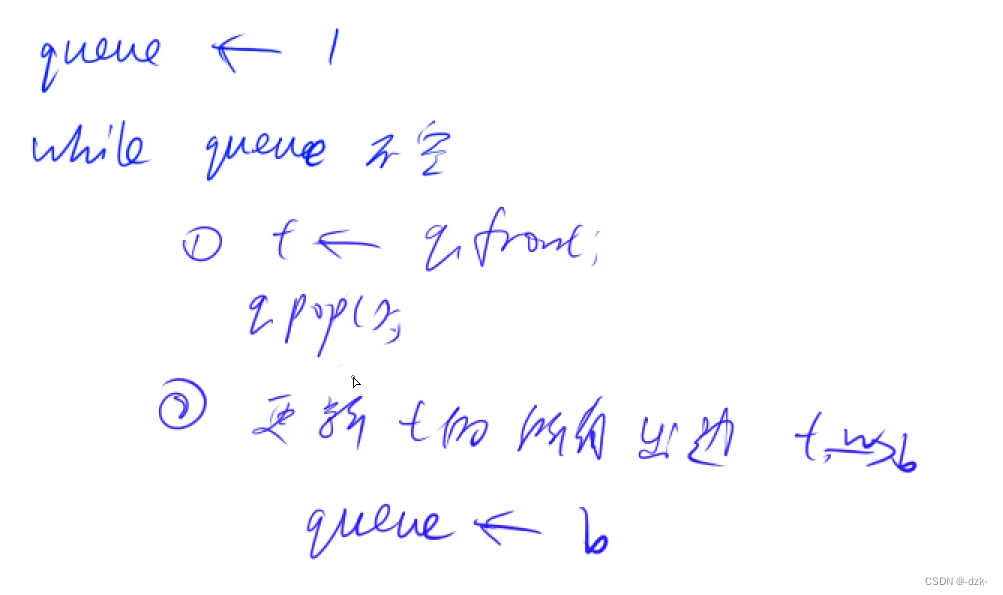 queue ← 1
while queue 不空
① t ← q.front;
q.pop();
② 更新 t的 所有 出边 t w→ b
queue ← b
CSDN @-dzk-